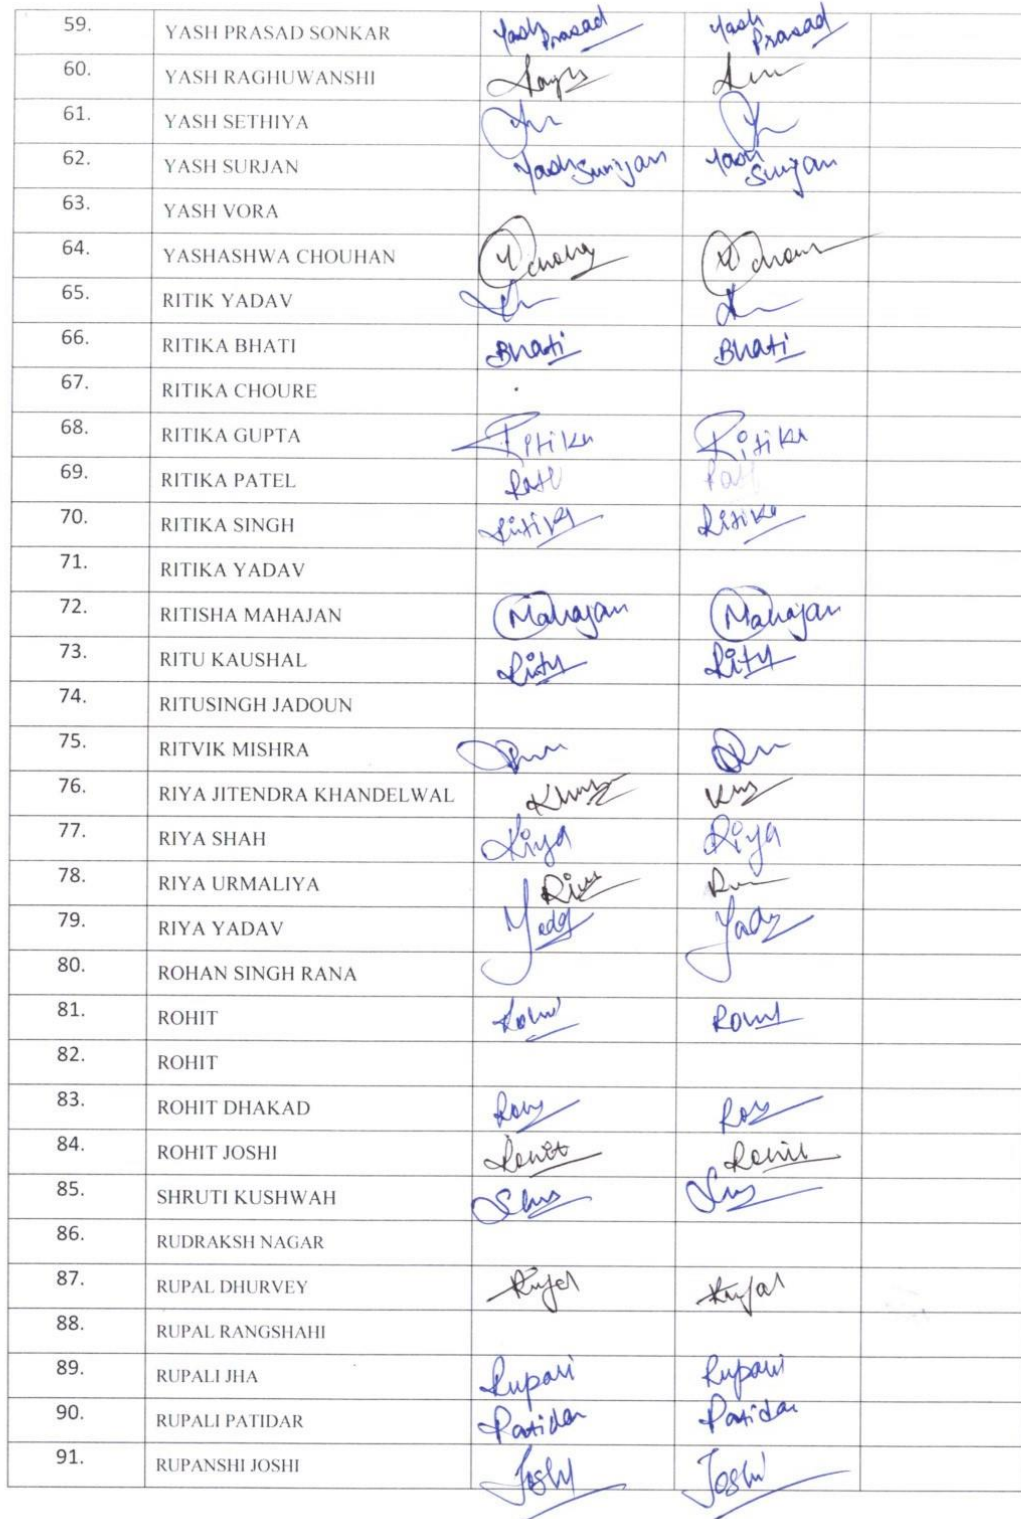 59. YASH PRASAD SONKAR Yash Prasad Yash Prasad
60. YASH RAGHUWANSHI
61. YASH SETHIYA
62. YASH SURJAN Yash Surijan Yash Surjan
63. YASH VORA
64. YASHASHWA CHOUHAN
65. RITIK YADAV
66. RITIKA BHATI Bhati Bhati
67. RITIKA CHOURE
68. RITIKA GUPTA Ritika Ritika
69. RITIKA PATEL
70. RITIKA SINGH Ritika Ritika
71. RITIKA YADAV
72. RITISHA MAHAJAN Mahajan Mahajan
73. RITU KAUSHAL Ritu Ritu
74. RITUSINGH JADOUN
75. RITVIK MISHRA
76. RIYA JITENDRA KHANDELWAL
77. RIYA SHAH Riya Riya
78. RIYA URMALIYA
79. RIYA YADAV
80. ROHAN SINGH RANA
81. ROHIT
82. ROHIT
83. ROHIT DHAKAD
84. ROHIT JOSHI Rohit Rohit
85. SHRUTI KUSHWAH
86. RUDRAKSH NAGAR
87. RUPAL DHURVEY Rupal Rupal
88. RUPAL RANGSHAHI
89. RUPALI JHA Rupali Rupali
90. RUPALI PATIDAR Patidar Patidar
91. RUPANSHI JOSHI Joshi Joshi